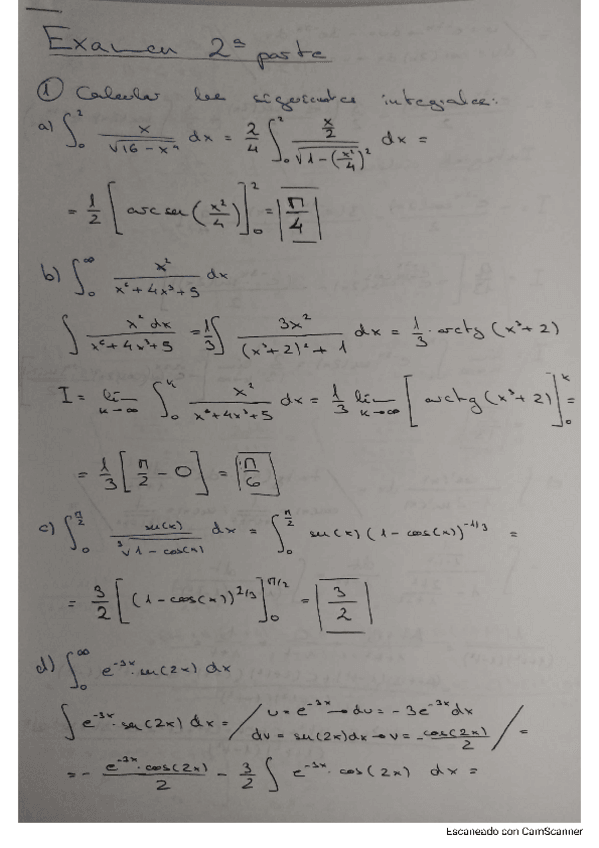 Examen 2ª parte
① Calcular las siguientes integrales:
a) ∫₀² x/√(16 - x⁴) dx = 2/4 ∫₀² (x/2)/√(1 - (x²/4)²) dx =
= 1/2 [arcsen(x²/4)]₀² = π/4
b) ∫₀^∞ x²/(x⁶ + 4x³ + 5) dx
∫ x² dx/(x⁶ + 4x³ + 5) = 1/3 ∫ 3x²/((x³ + 2)² + 1) dx = 1/3 · arctg(x³ + 2)
I = lím_{k→∞} ∫₀^k x²/(x⁶ + 4x³ + 5) dx = 1/3 lím_{k→∞} [arctg(x³ + 2)]₀^k =
= 1/3 [π/2 - 0] = π/6
c) ∫₀^{π/2} sen(x)/∛(1 - cos(x)) dx = ∫₀^{π/2} sen(x) (1 - cos(x))^{-1/3} =
= 3/2 [(1 - cos(x))^{2/3}]₀^{π/2} = 3/2
d) ∫₀^∞ e^{-3x} · sen(2x) dx
∫ e^{-3x} · sen(2x) dx = / u = e^{-3x} → du = -3e^{-3x} dx
dv = sen(2x)dx → v = -cos(2x)/2 / =
= - e^{-3x} · cos(2x)/2 - 3/2 ∫ e^{-3x} · cos(2x) dx =
Escaneado con CamScanner